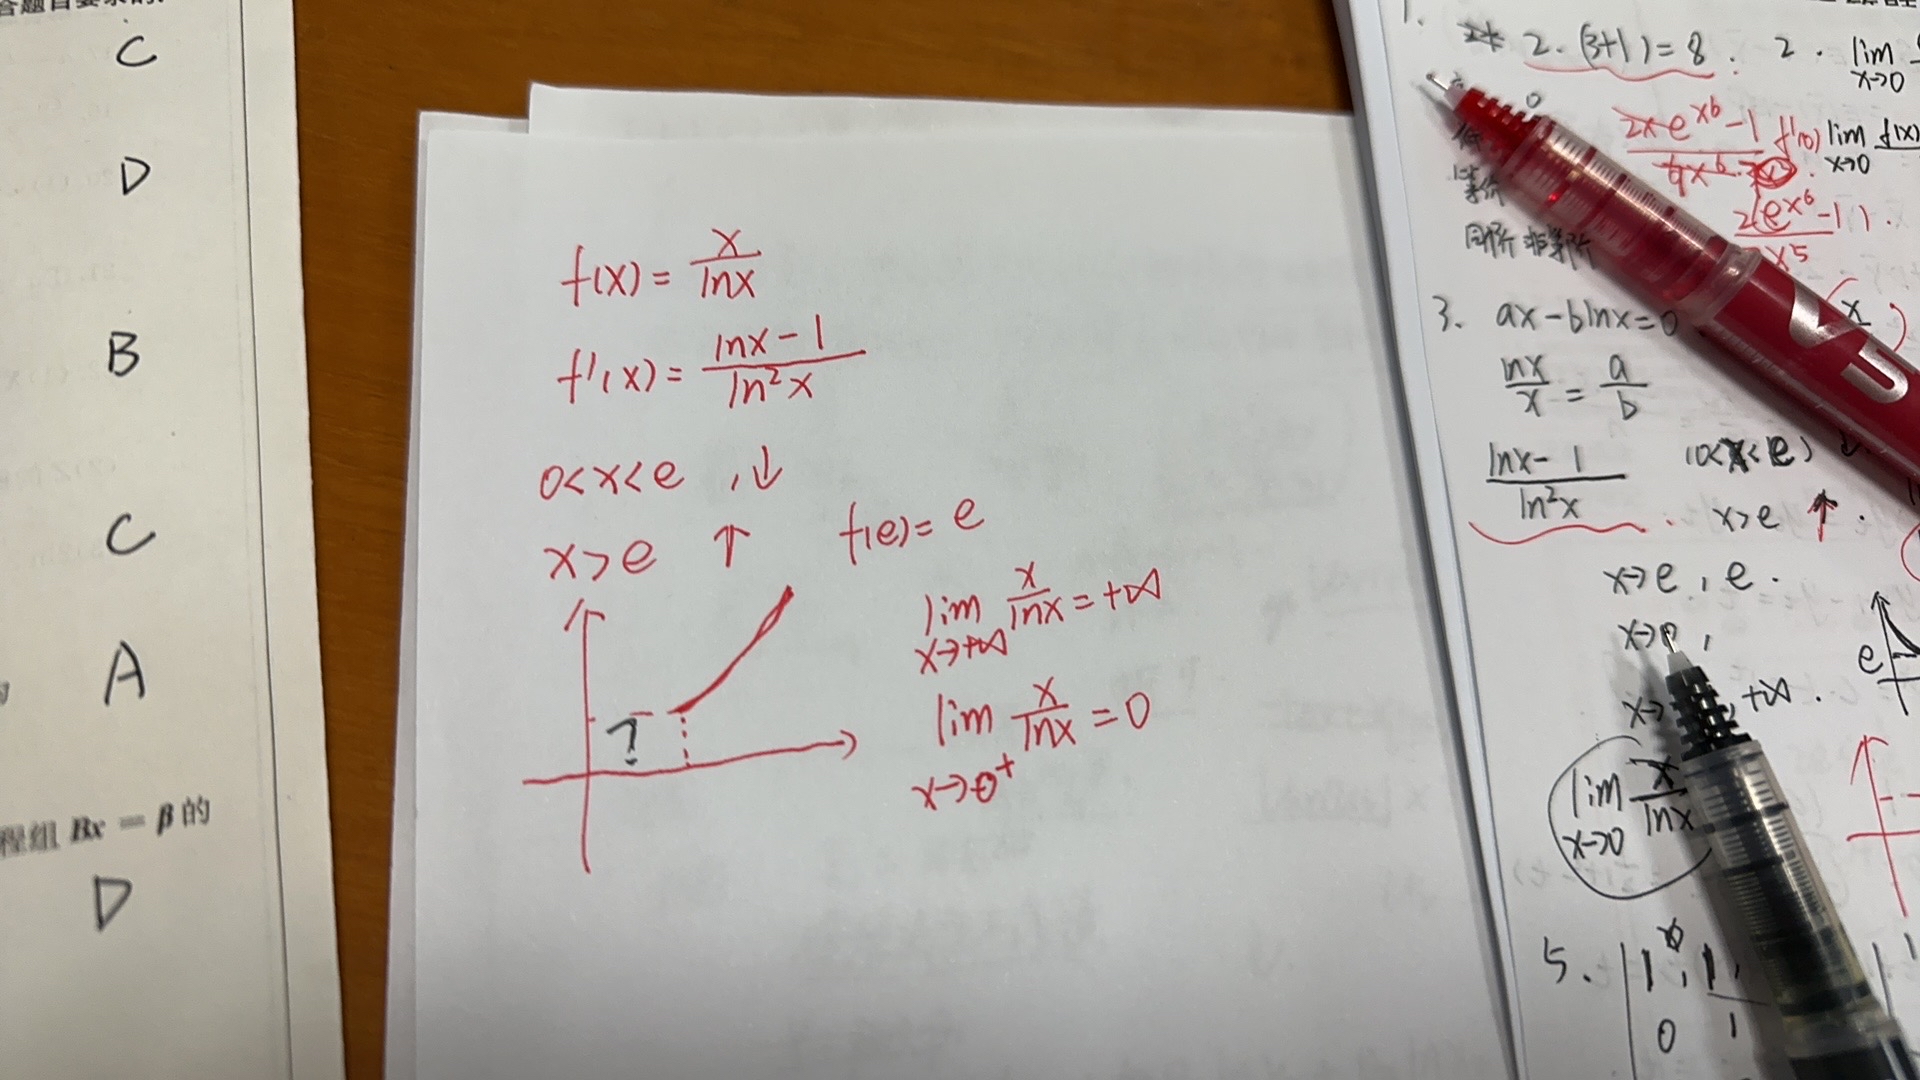 C
D
B
C
A
程组 Bx = β 的
D
f(x) = x/lnx
f'(x) = lnx - 1/ln²x
0<x<e , ↓
x>e ↑ f(e) = e
lim x→+∞ x/lnx = +∞
lim x→0⁺ x/lnx = 0
?
1.
2·(3+1) = 8 .
2. lim x→0
2xe^x⁶ - 1
f'(0) lim x→0 f(x)
2(e^x⁶ - 1) .
x⁵
同阶非等价
3. ax - blnx = 0
lnx/x = a/b
lnx - 1/ln²x
(0<x<e) ↓
x>e ↑ .
x→e , e .
x→0 ,
x→ +∞ .
e
lim x→0 x/lnx
5.
1 1
0 1